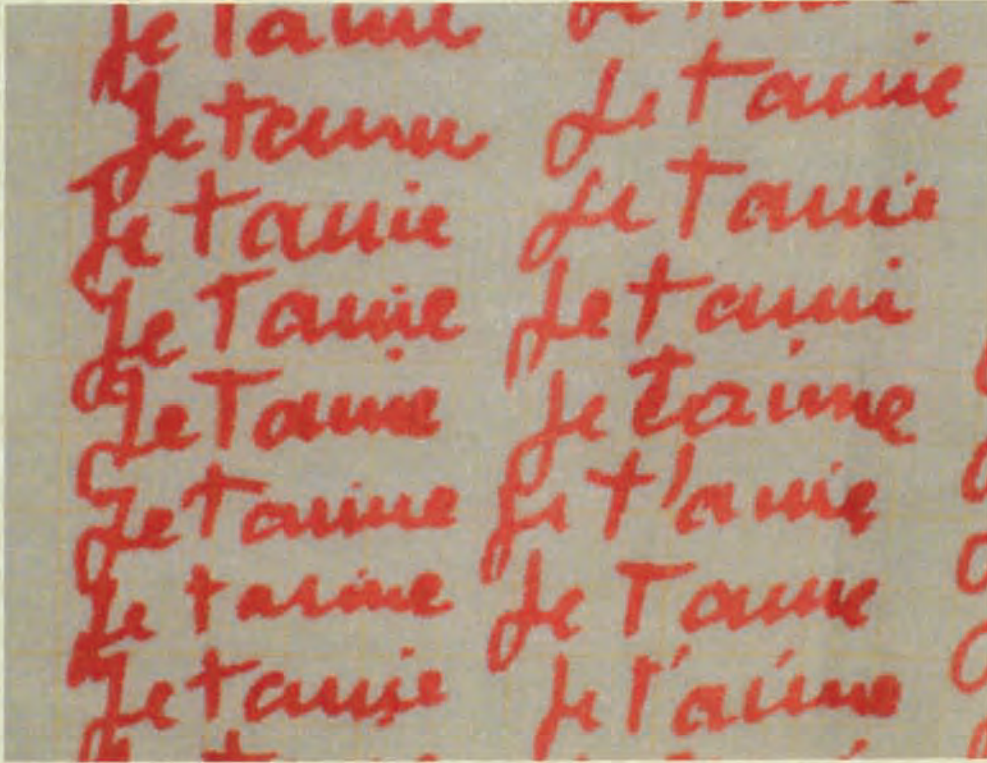 Je t'aime
Je taime Je taime
Je taime Je taime
Je Taime Je taime
Je Taime Je taime
Je taime Je t'aime
Je taime Je Taime
Je taime Je t'aime